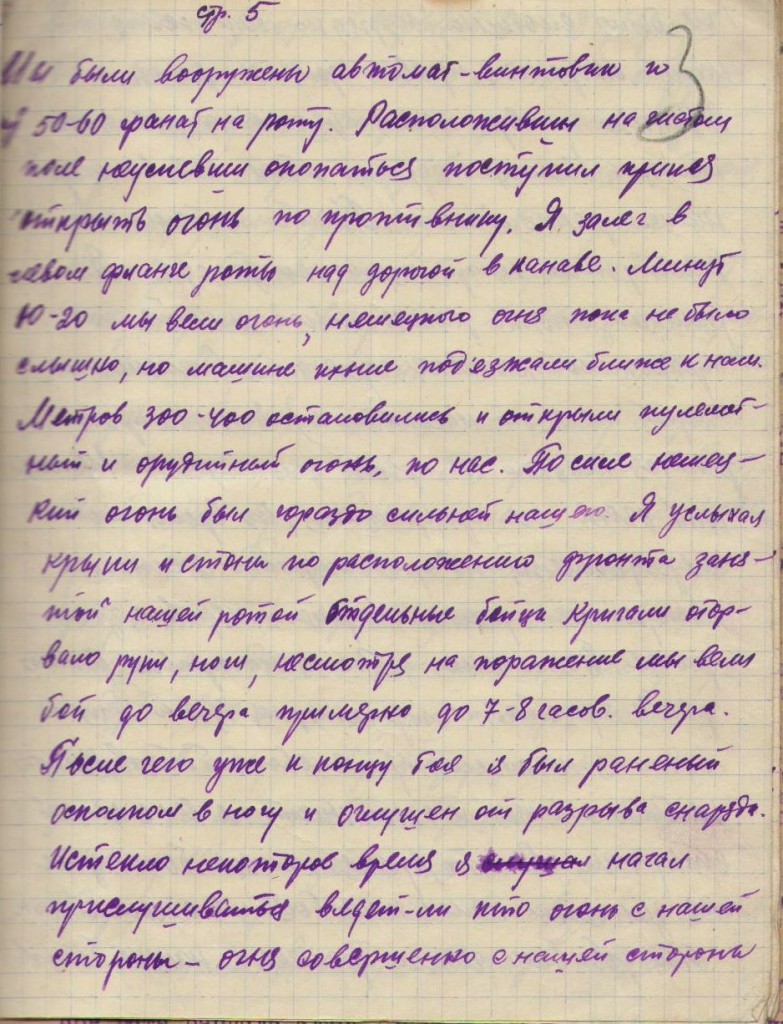 стр. 5
3
Мы были вооружены автомат-винтовки и
50-60 гранат на роту. Расположившись на чистом
поле неуспевши окопаться поступил приказ
открыть огонь по противнику. Я залег в
левом фланге роты над дорогой в канаве. Минут
10-20 мы вели огонь, немецкого огня пока не было
слышно, но машины подъезжали ближе к нам.
Метров 300-400 остановились и открыли пулемет-
ный и орудийный огонь, по нас. По силе немец-
кий огонь был гораздо сильней нашего. Я услыхал
крыки и стоны по расположению фронта заня-
той нашей ротой отдельные бойцы кричали отор-
вало руки, ноги, несмотря на поражение мы вели
бой до вечера примерно до 7-8 часов. вечера.
После чего уже к концу боя я был раненый
осколком в ногу и оглушен от разрыва снаряда.
Истекло некоторое время я начал
прислушиваться ведет-ли кто огонь с нашей
стороны – огня совершенно с нашей стороны